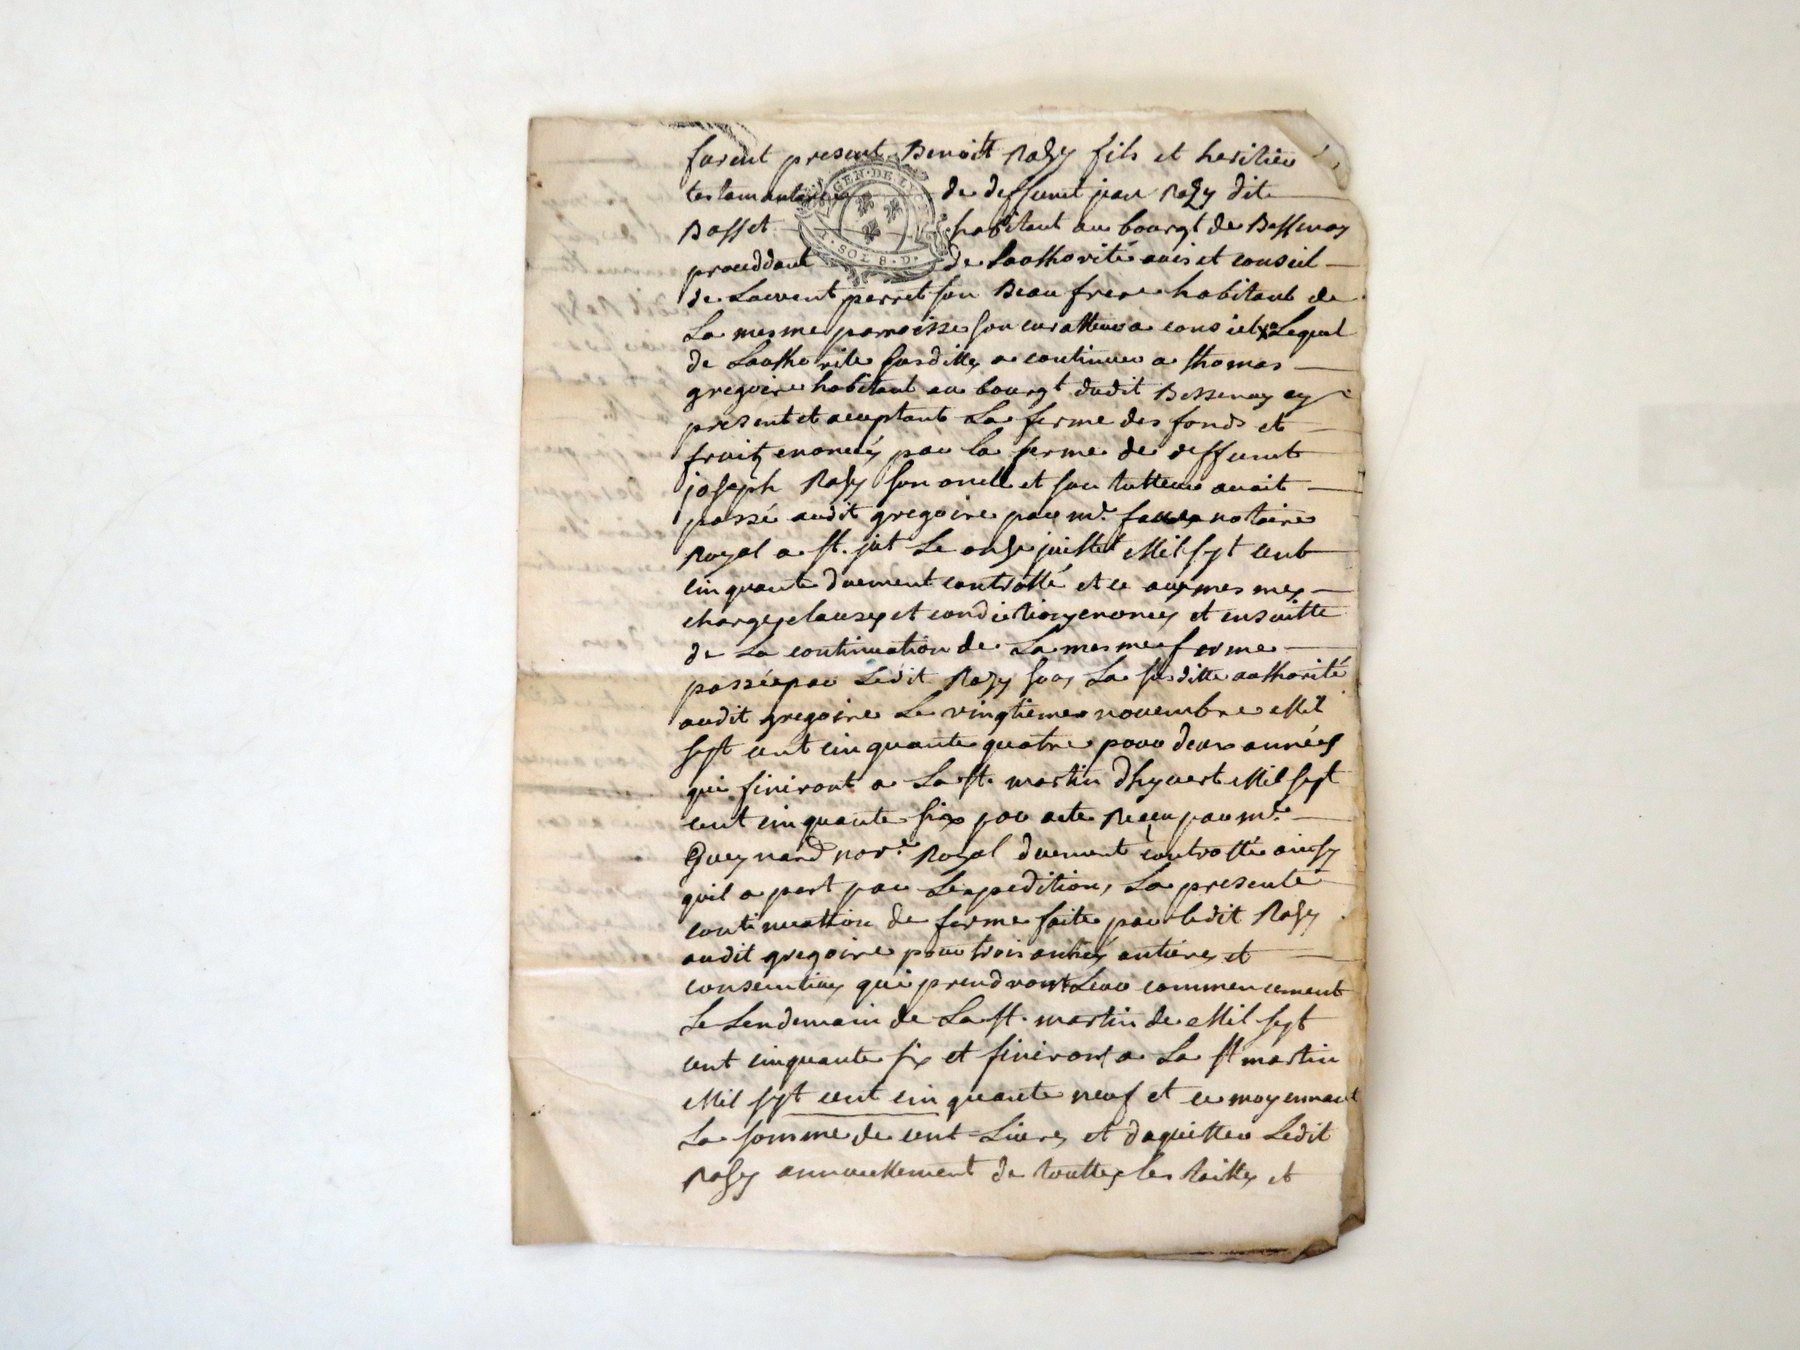 furent present Benoitt Razy fils et heritier
testamantaire de deffunt jean Razy dit
Basset habitant au bourgt de Bessenay
GEN · DE LY
SOLS · D ·
proceddant de Lauthorité avis et conseil
de Laurent perret son Beau frere habitant de
La mesme parroisse son curatteur a conseil Lequel
de Lauthorite susditte a continuer a thomas
gregoire habitant au bourgt dudit Bessenay cy
present et aceptant La ferme des fonds et
fruitz enoncés par la ferme de deffunt
joseph Razy son oncle et son tutteur avoit
passé audit gregoire par me. notaire
Royal a st. jut Le onze juillet Mil sept cent
cinquante duement controllé et ce aux mesmes
charges clauses et condictions enonces et ensuitte
de La continuation de La mesme ferme
passée par Ledit Razy sous La susditte authorité
audit gregoire Le vingtieme novembre Mil
sept cent cinquante quatre pour deux années
qui finiront a La st. martin d'hyvert Mil sept
cent cinquante six par acte Reçeu par me.
Gueynard nore. Royal duement controllé ainsy
quil a pert par Lexpedition, La presente
continuattion de ferme faite par ledit Razy
audit gregoire pour trois années antieres et
consecutives qui prendront Leur commencement
Le Lendemain de La st. martin de Mil sept
cent cinquante six et finiront a La st martin
Mil sept cent cinquante neuf et ce moyennant
La somme de cent Livres et daquitter Ledit
Razy annuellement de touttes les tailles et